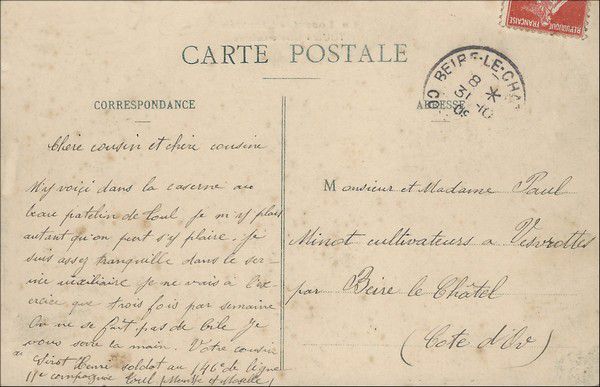 REPUBLIQUE FRANÇAISE
CARTE POSTALE
BEIRE-LE-CHA
8
31 -10
09
CORRESPONDANCE
ADRESSE
Chère cousin et chère cousine
M'y voici dans la caserne au
beau patelin de Toul. Je m'y plais
autant qu'on peut s'y plaire. Je
suis assez tranquille dans le ser-
vice auxiliaire je ne vais à l'ex-
ercice que trois fois par semaine
On ne se fait pas de bile Je
vous serre la main. Votre cousin
Sirot Henri soldat au 146e de ligne
11e compagnie Toul (Meurthe et Moselle)
Monsieur et Madame Paul
Minot cultivateurs à Vesvrottes
par Beire le Châtel
(Cote d'Or)